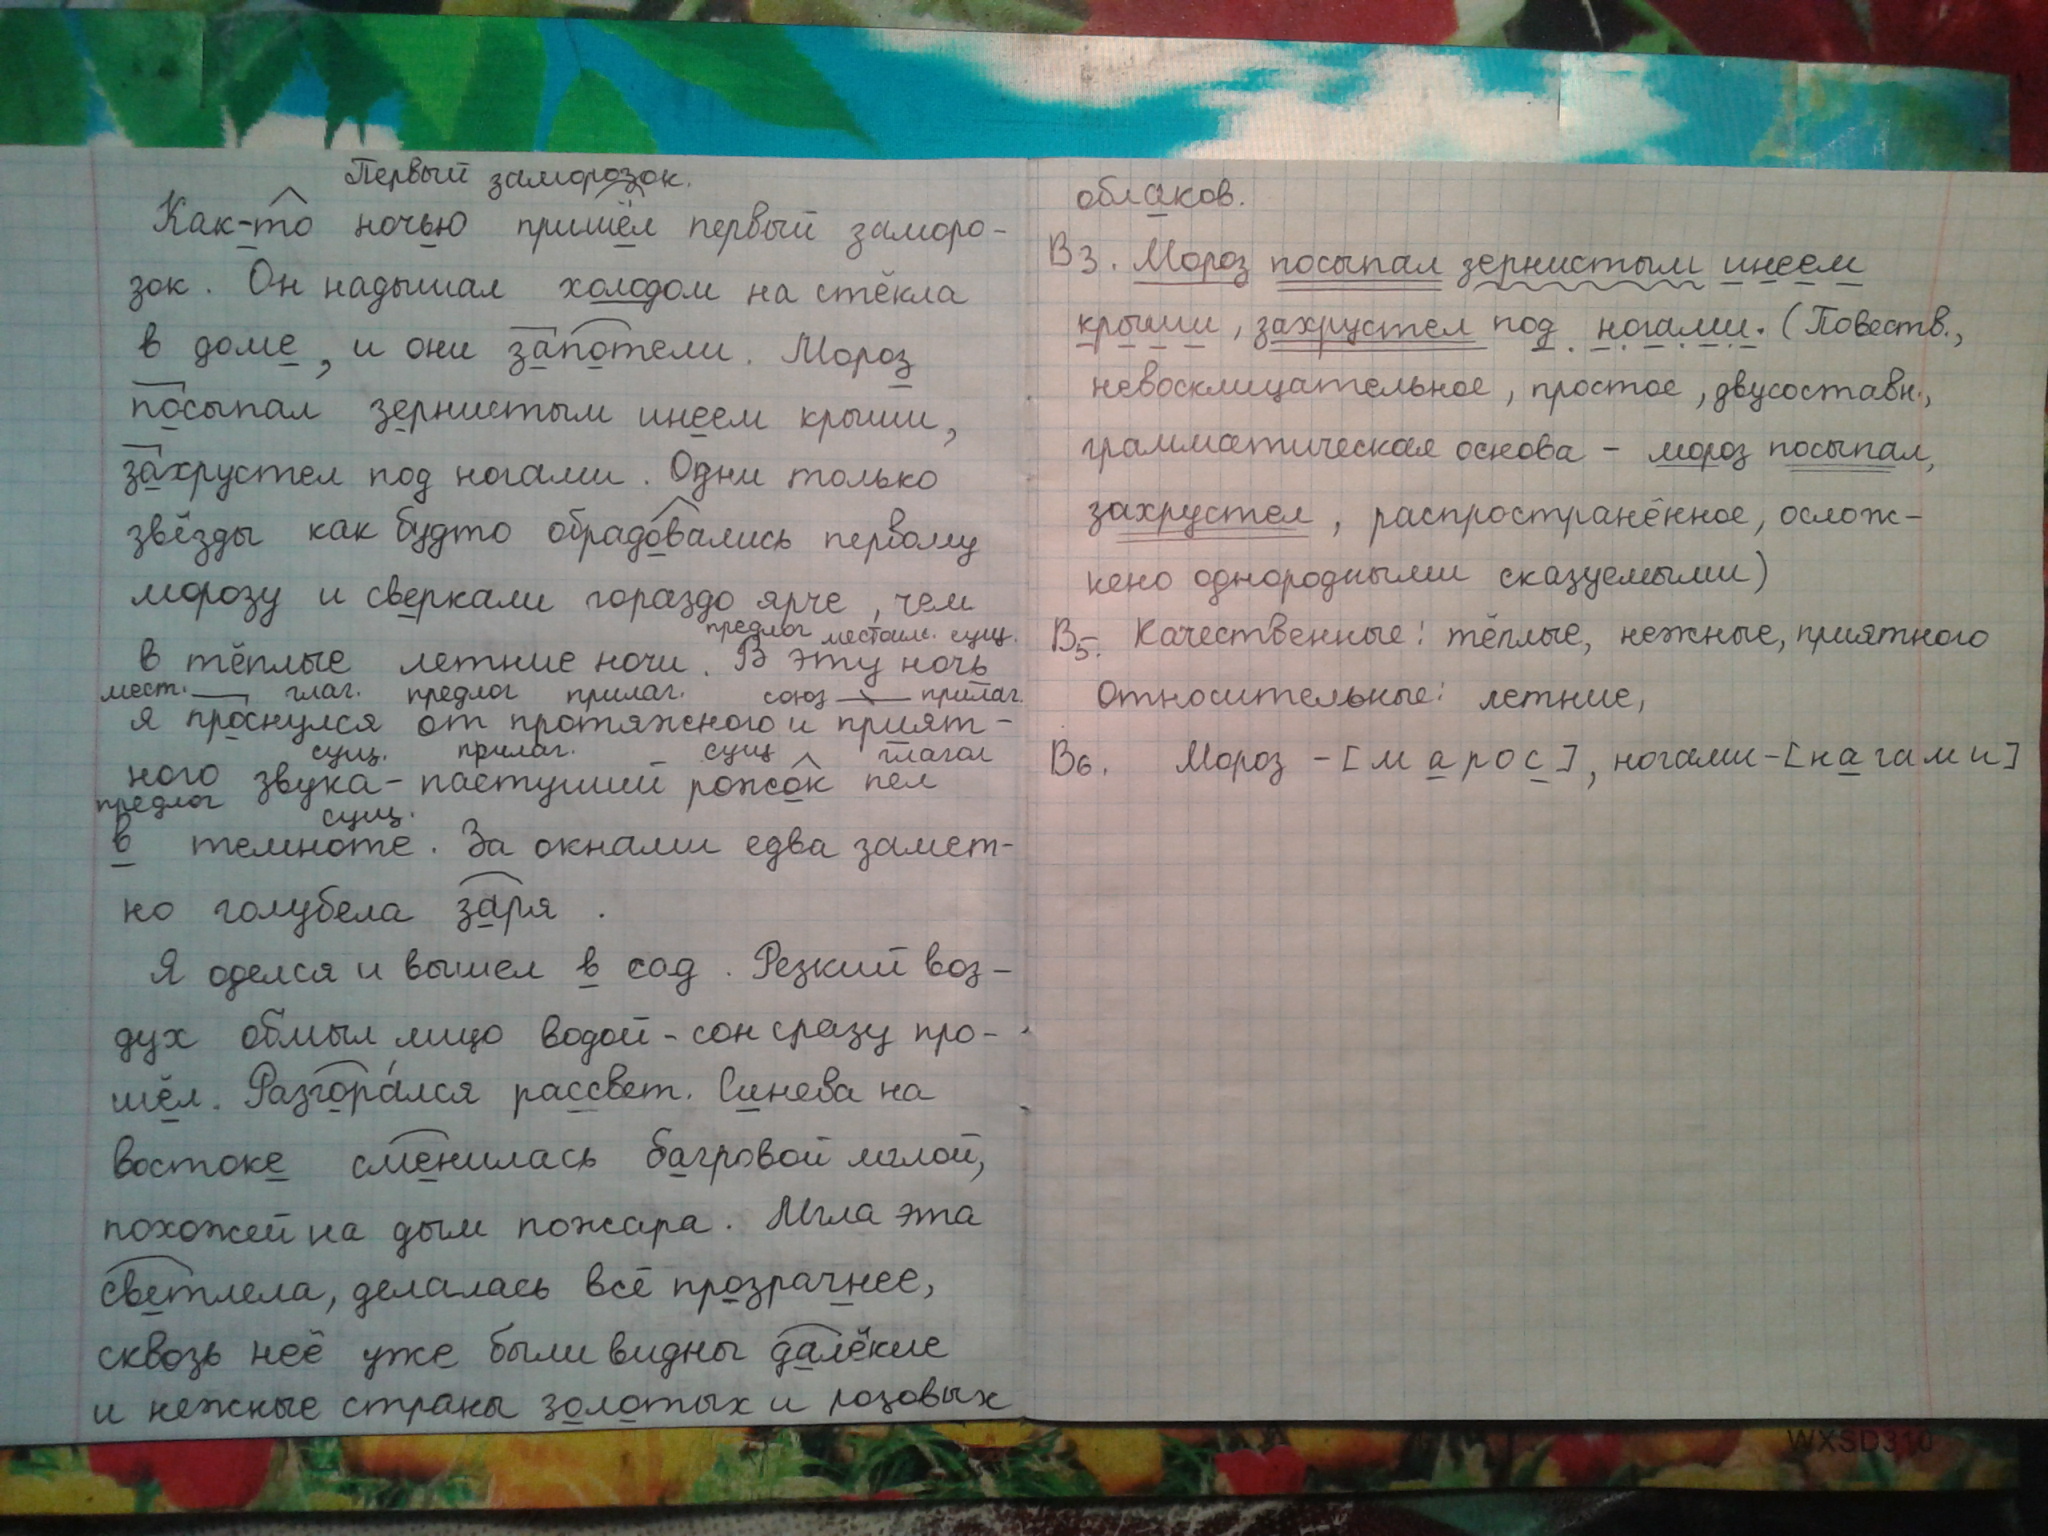 Первый заморозок.
Как-то ночью пришёл первый заморо-
зок. Он надышал холодом на стёкла
в доме, и они запотели. Мороз
посыпал зернистым инеем крыши,
захрустел под ногами. Одни только
звёзды как будто обрадовались первому
морозу и сверкали гораздо ярче, чем
предлог местоим. сущ.
в тёплые летние ночи. В эту ночь
мест. глаг. предлог прилаг. союз прилаг.
я проснулся от протяжного и прият-
сущ. прилаг. сущ глагол
ного звука - пастуший рожок пел
предлог сущ.
в темноте. За окнами едва замет-
но голубела заря.
Я оделся и вышел в сад. Резкий воз-
дух обмыл лицо водой - сон сразу про-
шёл. Разгора́лся рассвет. Синева на
востоке сменилась багровой мглой,
похожей на дым пожара. Мгла эта
светлела, делалась всё прозрачнее,
сквозь неё уже были видны далёкие
и нежные страны золотых и розовых
облаков.
В3. Мороз посыпал зернистым инеем
крыши, захрустел под ногами. (Повеств.,
невосклицательное, простое, двусоставн.,
грамматическая основа - мороз посыпал,
захрустел, распространённое, ослож-
нено однородными сказуемыми)
В5. Качественные: тёплые, нежные, приятного
Относительные: летние,
В6. Мороз - [марос], ногами - [нагами]
WXSD310